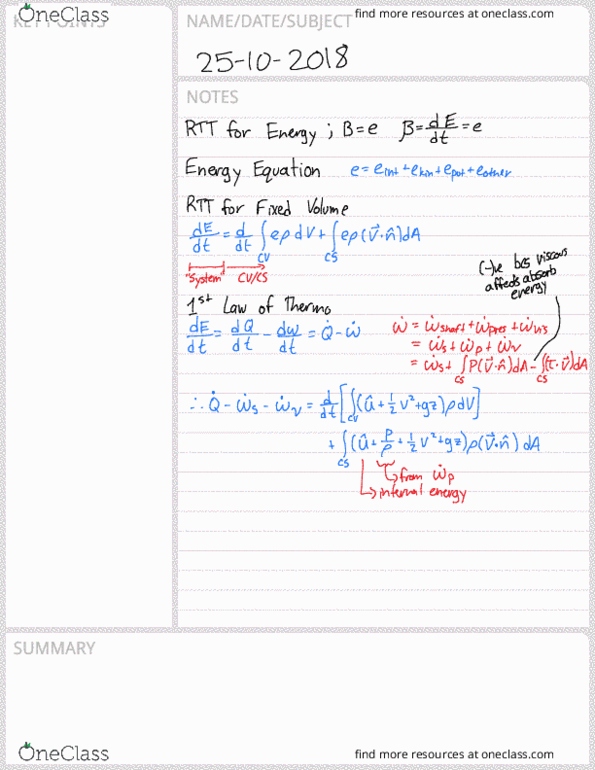 OneClass
find more resources at oneclass.com
KEY POINTS
NAME/DATE/SUBJECT
25-10-2018
NOTES
RTT for Energy ; B=e β=dE/dt=e
Energy Equation e=e_int+e_kin+e_pot+e_other
RTT for Fixed Volume
dE/dt = d/dt ∫_CV eρdV + ∫_CS eρ(V⃗·n̂)dA
"System" CV/CS
(-)ve bcs viscous
affects absorb
energy
1st Law of Thermo
dE/dt = dQ/dt - dw/dt = Q̇-ẇ
ẇ = ẇ_shaft+ẇ_pres+ẇ_vis
= ẇ_s+ẇ_p+ẇ_v
= ẇ_s+ ∫_CS P(V⃗·n̂)dA-∫_CS(τ·v⃗)dA
∴ Q̇-ẇ_s-ẇ_v = d/dt[∫_CV(û+½v²+gz)ρdV]
+ ∫_CS (û+p/ρ+½v²+gz)ρ(V⃗·n̂) dA
from ẇ_p
internal energy
SUMMARY
OneClass
find more resources at oneclass.com